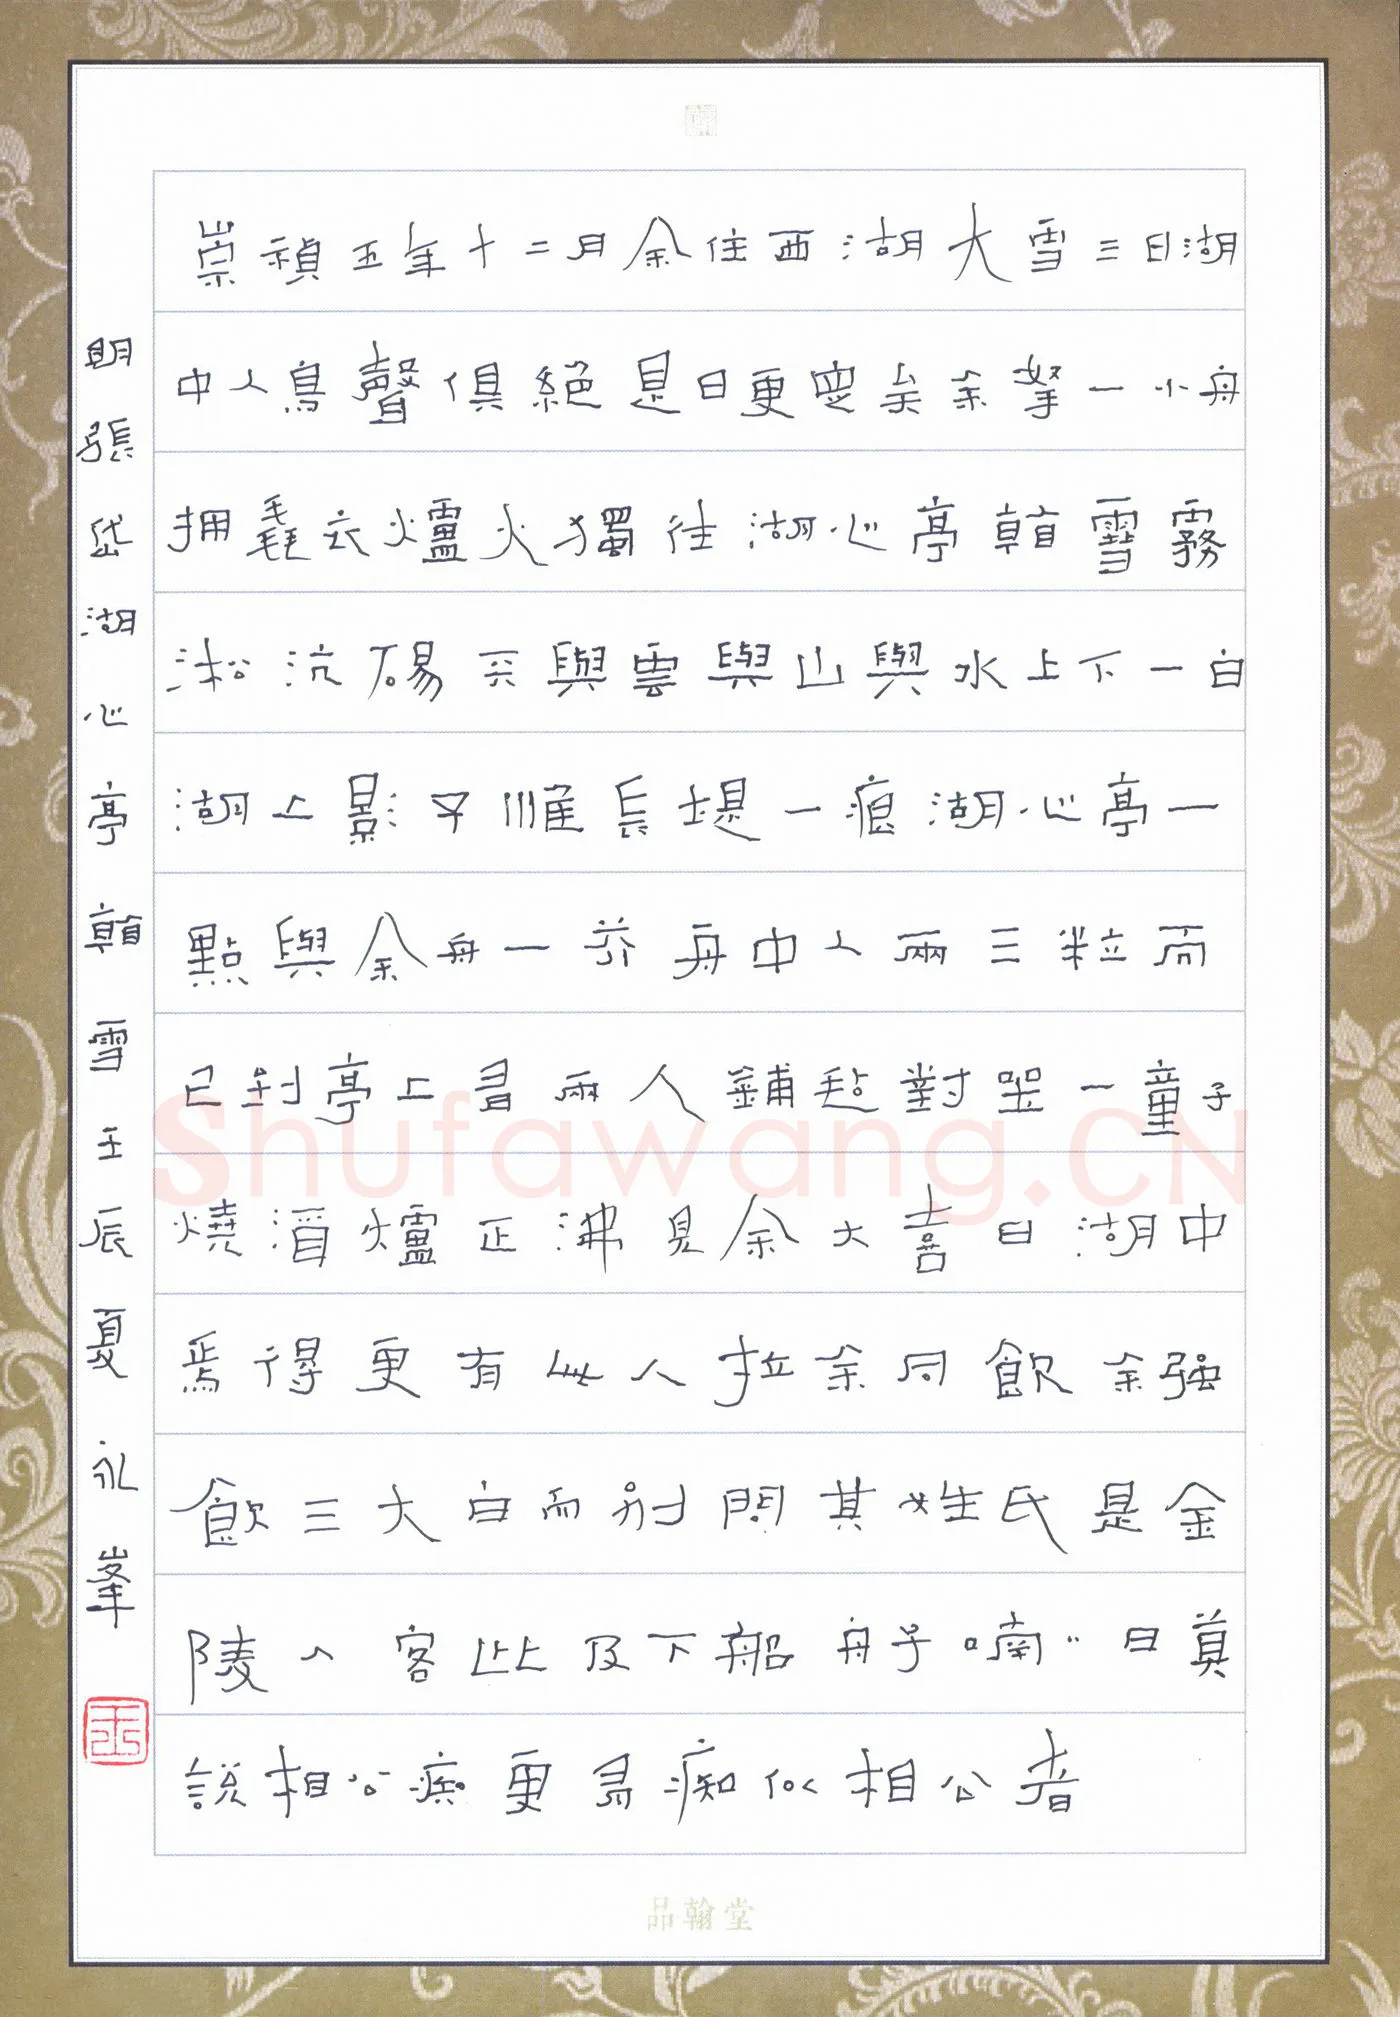 崇禎五年十二月余住西湖大雪三日湖
中人鳥聲俱絕是日更定矣余拏一小舟
擁毳衣爐火獨往湖心亭看雪霧
淞沆碭天與雲與山與水上下一白
湖上影子惟長堤一痕湖心亭一
點與余舟一芥舟中人兩三粒而
已到亭上有兩人鋪氈對坐一童子
燒酒爐正沸見余大喜曰湖中
焉得更有此人拉余同飲余強
飲三大白而別問其姓氏是金
陵人客此及下船舟子喃〃曰莫
說相公癡更有癡似相公者
明張岱湖心亭看雪壬辰夏永峯
品翰堂
Shufawang.CN